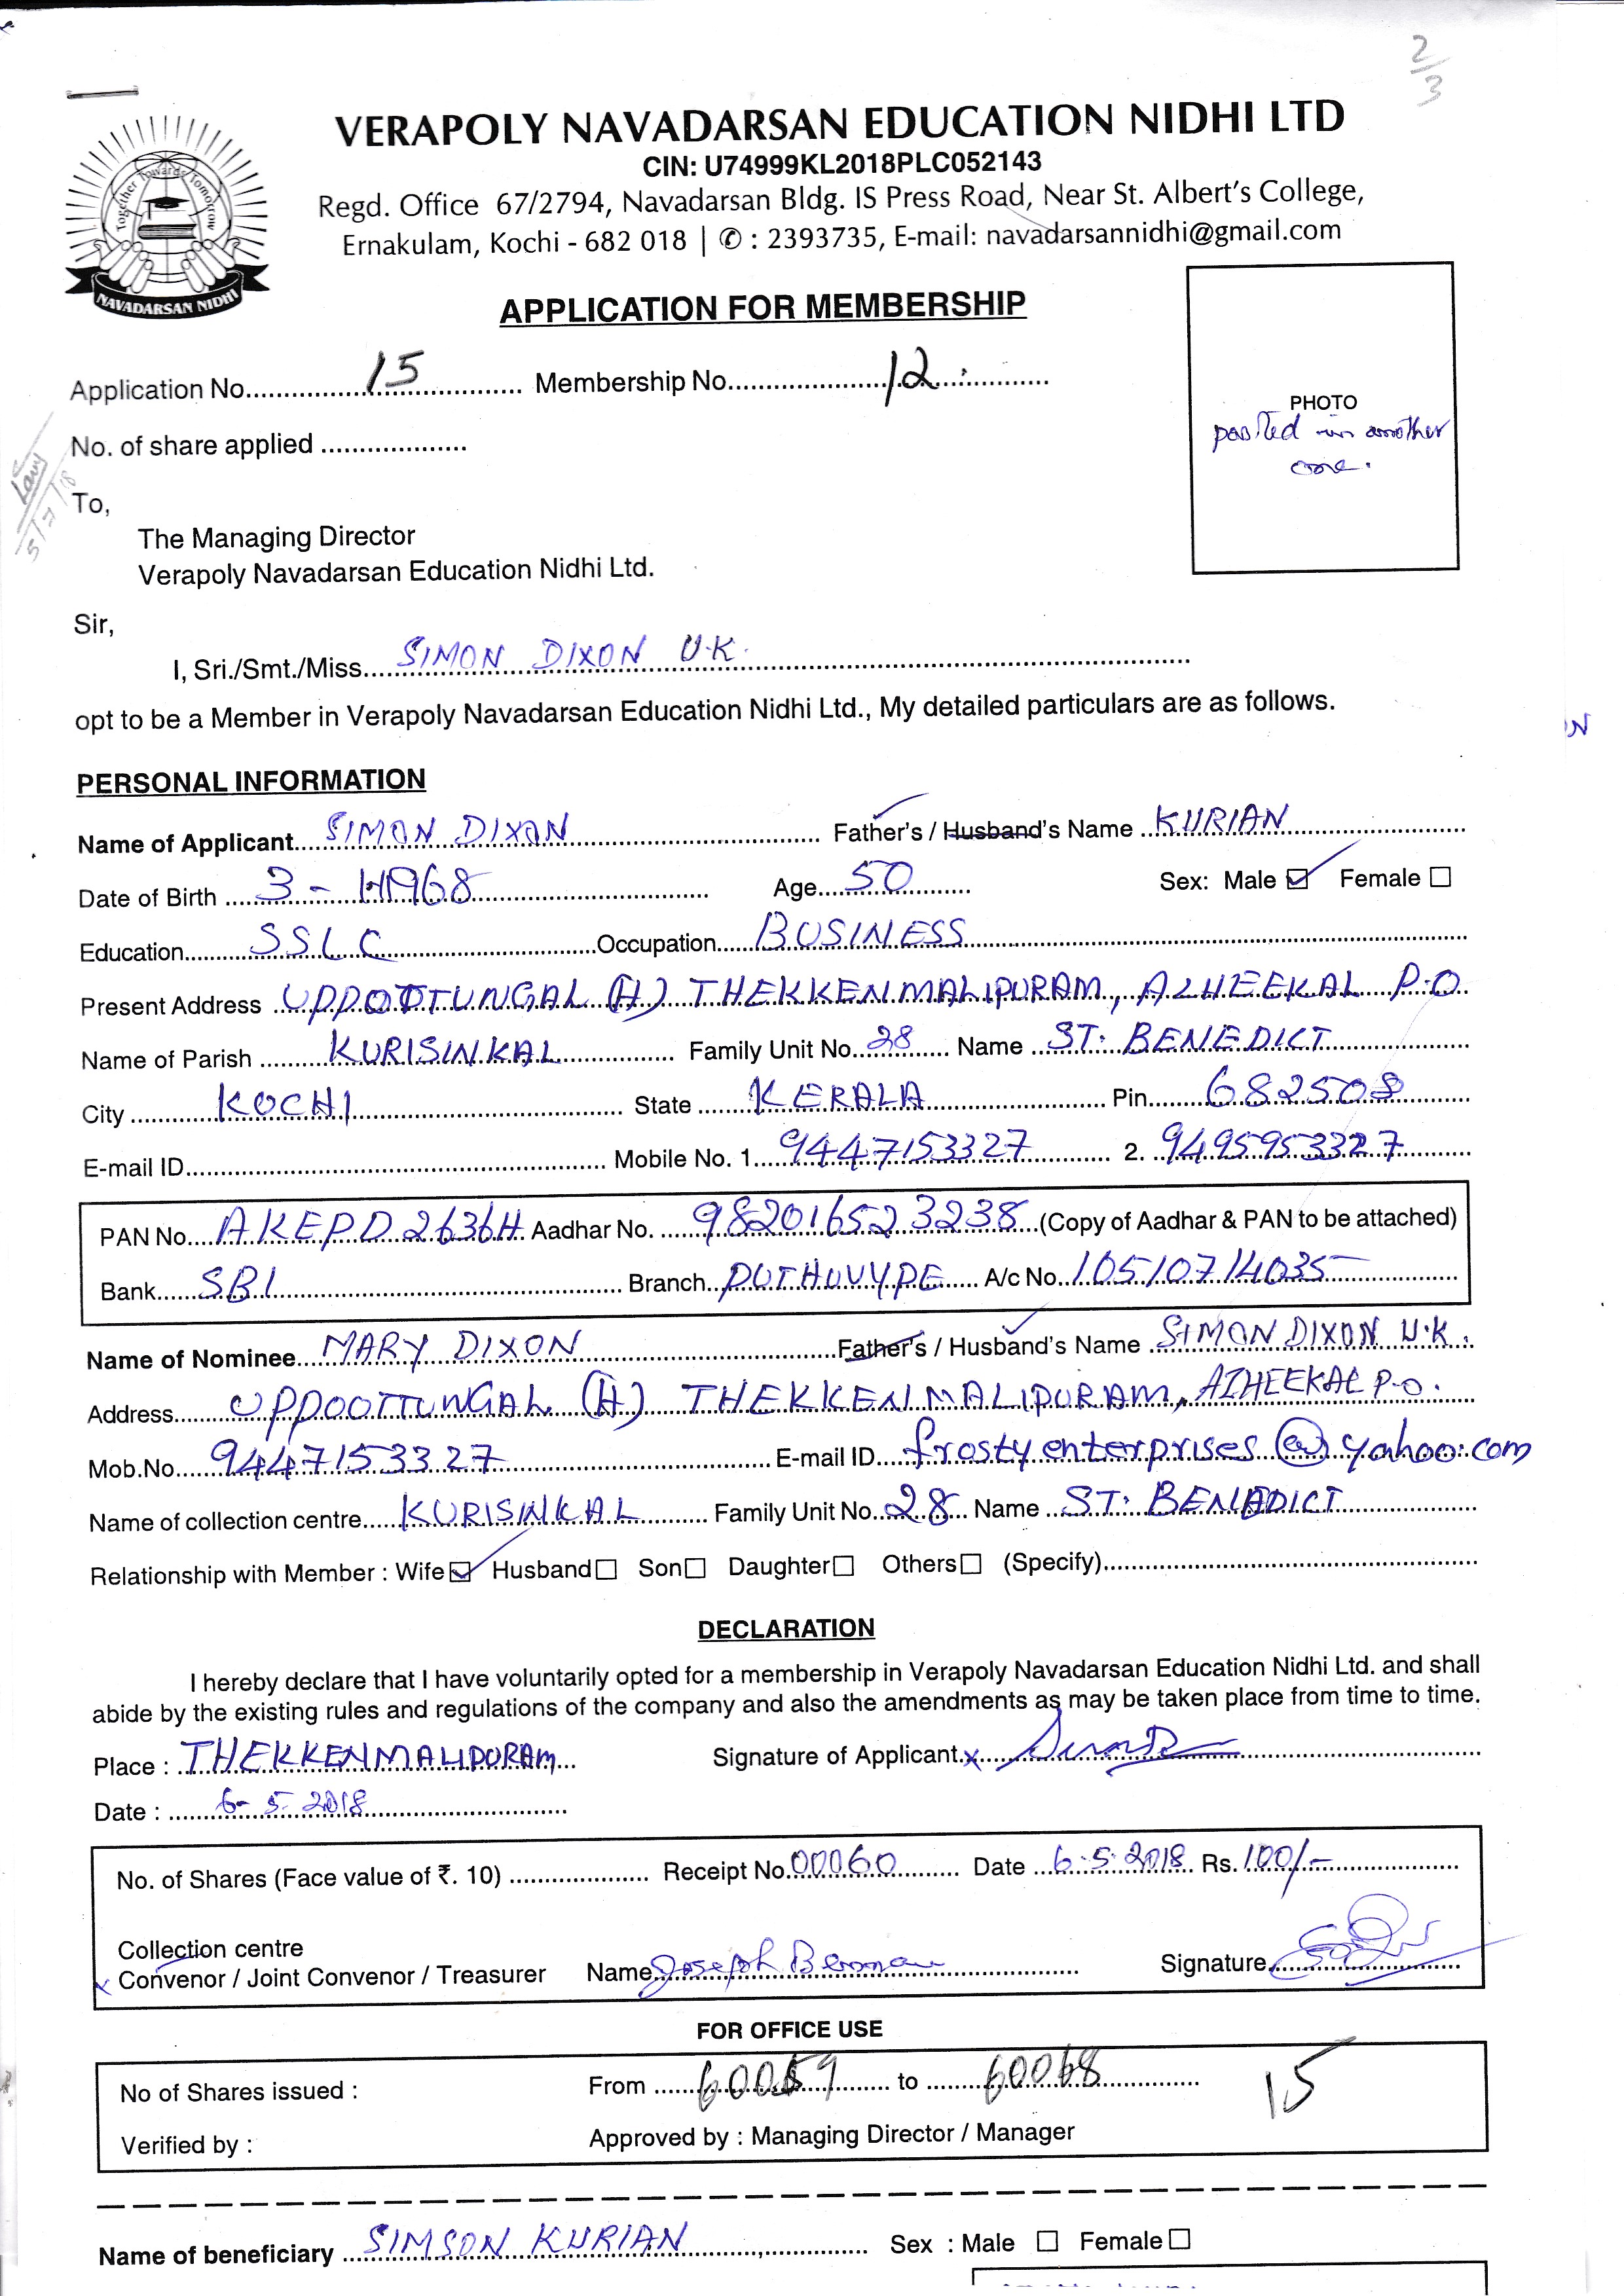 2/3
VERAPOLY NAVADARSAN EDUCATION NIDHI LTD
CIN: U74999KL2018PLC052143
Regd. Office 67/2794, Navadarsan Bldg. IS Press Road, Near St. Albert's College,
Ernakulam, Kochi - 682 018 | ✆ : 2393735, E-mail: navadarsannidhi@gmail.com
Together Towards Tomorrow
NAVADARSAN NIDHI
APPLICATION FOR MEMBERSHIP
Application No. 15 Membership No. 12
PHOTO
pasted in another
one.
No. of share applied
5/7/18
To,
The Managing Director
Verapoly Navadarsan Education Nidhi Ltd.
Sir,
I, Sri./Smt./Miss. SIMON DIXON U.K.
opt to be a Member in Verapoly Navadarsan Education Nidhi Ltd., My detailed particulars are as follows.
PERSONAL INFORMATION
Name of Applicant SIMON DIXON Father's / Husband's Name KURIAN
Date of Birth 3 - 1968 Age 50 Sex: Male ☑ Female ☐
Education SSLC Occupation BUSINESS
Present Address UPPOTTUNGAL (H) THEKKENMALIPURAM, AZHEEKAL P.O
Name of Parish KURISINKAL Family Unit No. 28 Name ST. BENEDICT
City KOCHI State KERALA Pin 682508
E-mail ID Mobile No. 1. 9447153327 2. 9495953327
PAN No. AKEPD2636H Aadhar No. 982016523238 (Copy of Aadhar & PAN to be attached)
Bank SBI Branch PUTHUVYPE A/c No. 10510714035
Name of Nominee MARY DIXON Father's / Husband's Name SIMON DIXON U.K.
Address UPPOOTTUNGAL (H) THEKKENMALIPURAM, AZHEEKAL P.O.
Mob.No. 9447153327 E-mail ID frostyenterprises@yahoo.com
Name of collection centre KURISINKAL Family Unit No. 28 Name ST. BENEDICT
Relationship with Member : Wife ☑ Husband ☐ Son ☐ Daughter ☐ Others ☐ (Specify)
DECLARATION
I hereby declare that I have voluntarily opted for a membership in Verapoly Navadarsan Education Nidhi Ltd. and shall
abide by the existing rules and regulations of the company and also the amendments as may be taken place from time to time.
Place : THEKKENMALIPURAM Signature of Applicant. x
Date : 6-5-2018
No. of Shares (Face value of ₹. 10) Receipt No. 00060 Date 6.5.2018 Rs. 100/-
Collection centre
Convenor / Joint Convenor / Treasurer Name Joseph Signature
FOR OFFICE USE
No of Shares issued : From 60059 to 60068 15
Verified by : Approved by : Managing Director / Manager
Name of beneficiary SIMSON KURIAN Sex : Male ☐ Female ☐